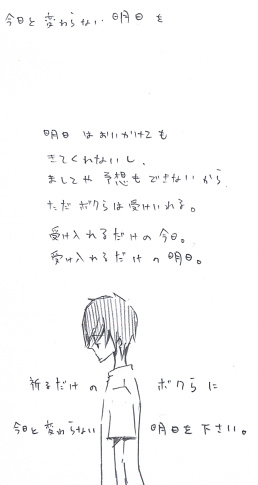 今日と変わらない明日を
明日はおいかけても
きてくれないし、
ましてや予想もできないから
ただボクらは受けいれる。
受け入れるだけの今日。
受け入れるだけの明日。
祈るだけのボクらに
今日と変わらない明日を下さい。